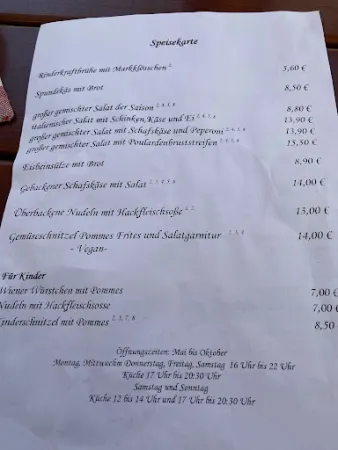 Speisekarte
Rinderkraftbrühe mit Markklösschen 2, 5,60 €
Spundekäs mit Brot 8,50 €
großer gemischter Salat der Saison 2, 4, 5, 6 8,80 €
italienischer Salat mit Schinken, Käse und Ei 2, 4, 5, 6 13,90 €
großer gemischter Salat mit Schafskäse und Peperoni 2, 4, 5, 6 13,90 €
großer gemischter Salat mit Poulardenbruststreifen 2, 4, 5, 6 15,50 €
Eisbeinsülze mit Brot 8,90 €
Gebackener Schafskäse mit Salat 2, 3, 4, 5, 6 14,00 €
Überbackene Nudeln mit Hackfleischsoße 2, 13,00 €
Gemüseschnitzel Pommes Frites und Salatgarnitur 14,00 €
- Vegan-
Für Kinder
Wiener Würstchen mit Pommes 7,00 €
Nudeln mit Hackfleischsosse 7,00 €
Kinderschnitzel mit Pommes 2, 3, 7, 8 8,50
Öffnungszeiten: Mai bis Oktober
Montag, Mittwochm Donnerstag, Freitag, Samstag 16 Uhr bis 22 Uhr
Küche 17 Uhr bis 20:30 Uhr
Samstag und Sonntag
Küche 12 bis 14 Uhr und 17 Uhr bis 20:30 Uhr